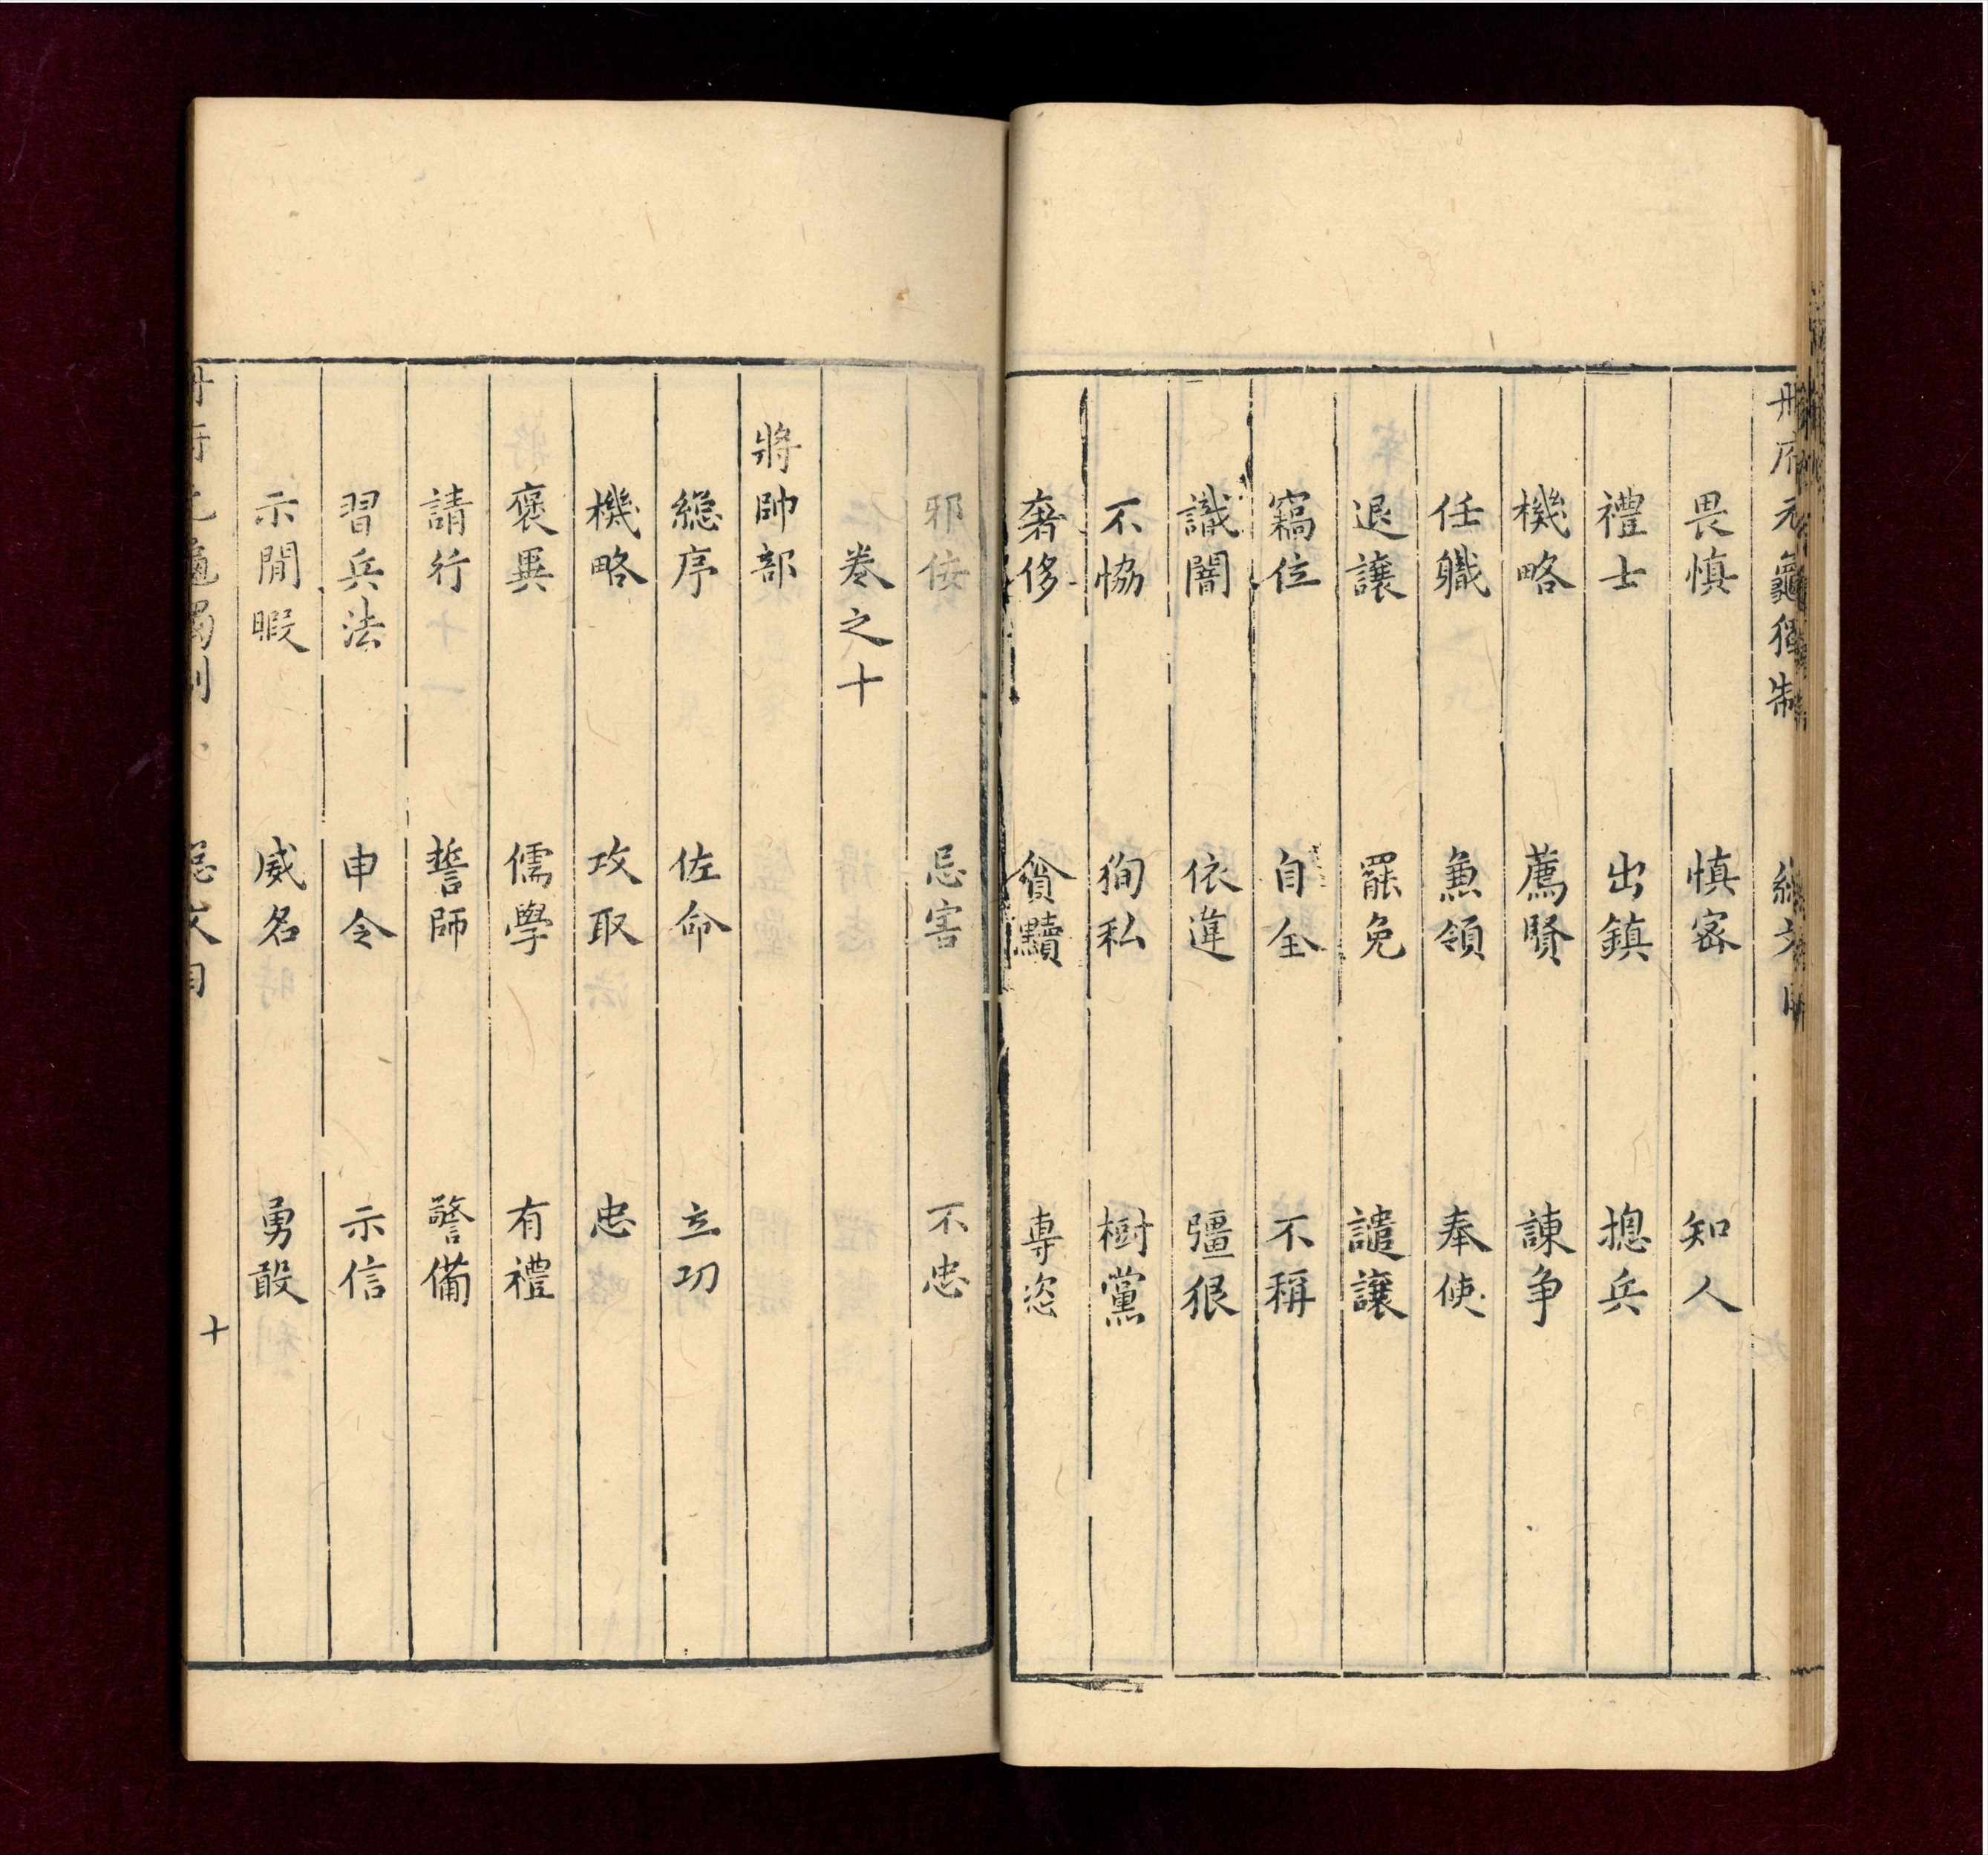 册府元龜獨制 總文目
畏慎 慎密 知人
禮士 出鎮 摠兵
機略 薦賢 諫争
任職 兼領 奉使
退讓 罷免 譴讓
竊位 自全 不稱
識闇 依違 彊狠
不恊 徇私 樹黨
奢侈 貪黷 專恣
邪佞 忌害 不忠
卷之十
將帥部
總序 佐命 立功
機略 攻取 忠
褒異 儒學 有禮
請行 誓師 警備
習兵法 申令 示信
示閒暇 威名 勇敢
十